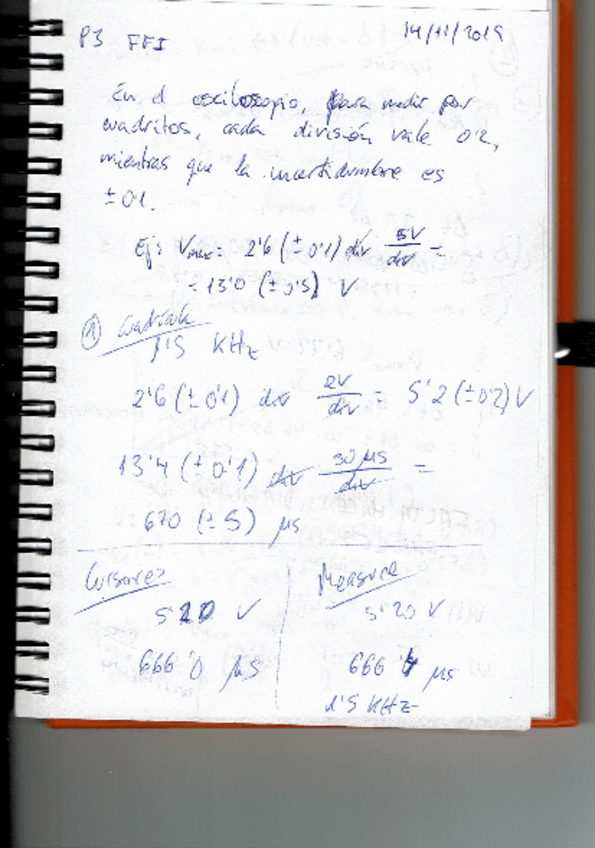 P3 FFI 14/11/2019
En el osciloscopio, para medir por
cuadritos, cada división vale 0'2,
mientras que la incertidumbre es
± 0'1.
Ej: Vmax = 2'6 (± 0'1) div 5V/div =
= 13'0 (± 0'5) V
① Cuadrada
1'5 KHz
2'6 (± 0'1) div 2V/div = 5'2 (± 0'2) V
13'4 (± 0'1) div 50 µs/div =
670 (± 5) µs
Cursores
5 20 V
666'0 µs
Measure
5'20 V
666'4 µs
1'5 KHz